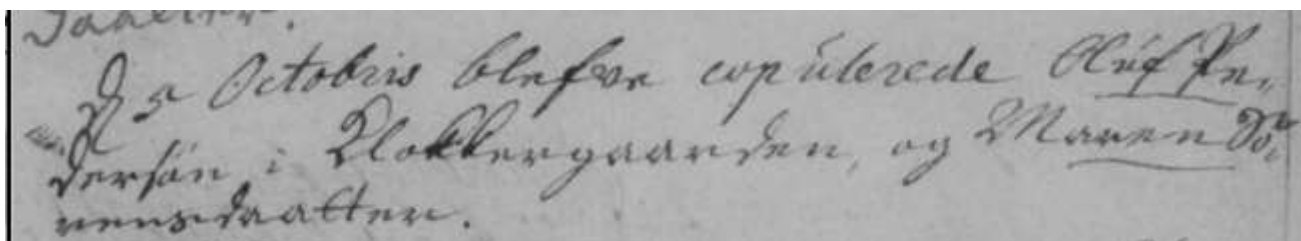 D 5 Octobris blefve copúlerede Olúf Pe-
dersøn i Klokkergaarden, og Maren Sø-
rensdaatter.